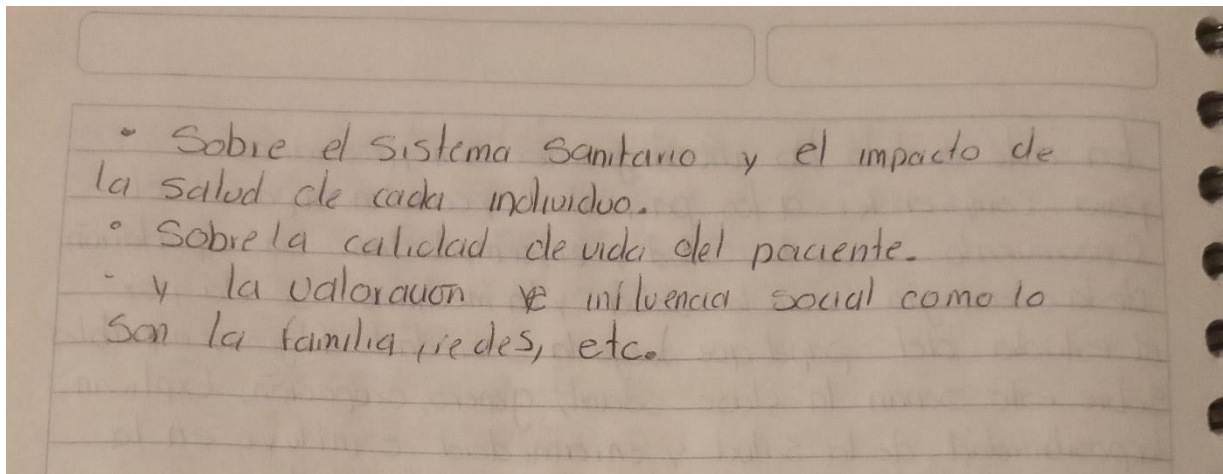 • Sobre el Sistema Sanitario y el impacto de
la salud de cada individuo.
• Sobre la calidad de vida del paciente.
- y la valoracion e influencia social como lo
son la familia, redes, etc.